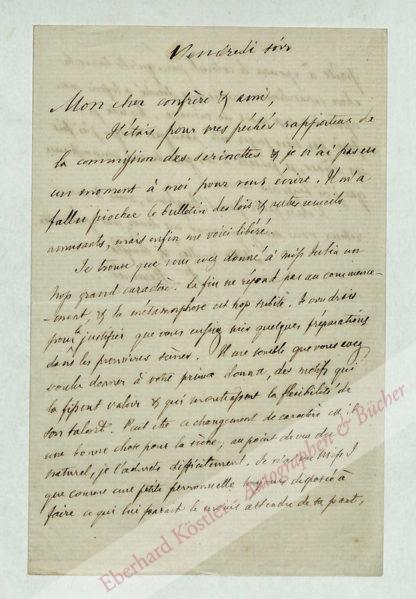 Vendredi soir
Mon cher confrère & ami,
J'étais pour mes péchés rapporteur de
la commission des serinettes & je n'ai pas eu
un moment à moi pour vous écrire. Il m'a
fallu piocher le bulletin des lois & autres recueils
amusants, mais enfin me voici libéré.
Je trouve que vous avez donné à miss un
trop grand caractère. La fin ne répond pas au commence-
-ment, & la métamorphose est trop subite. Je voudrais
pour la justifier que vous eussiez mis quelques préparations
dans les premières scènes. Il me semble que vous avez
voulu donner à votre prima donna, des motifs qui
la fissent valoir & qui montrassent la flexibilité de
son talent. Peut être ce changement de caractère est-il
une bonne chose pour la scène, au point de vue du
naturel, je l'admets difficilement. Je n'ai vu miss J
que comme une petite personnelle toujours disposée à
faire ce qui lui paraît le moins attendu de sa part,
Eberhard Köstler - Autographen & Bücher